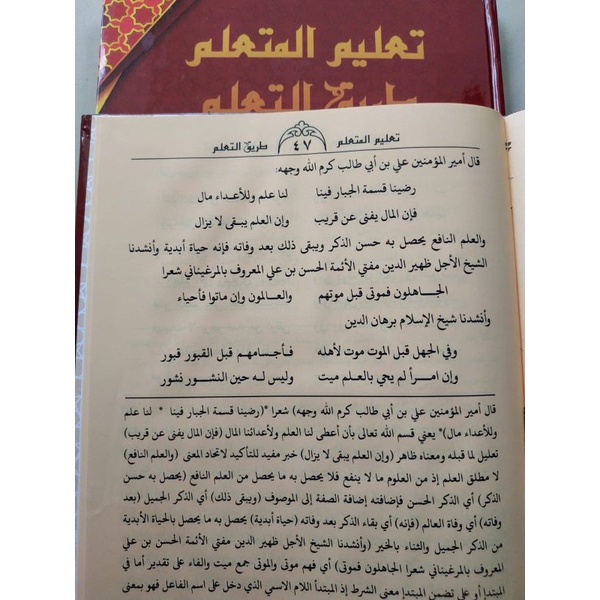 تعليم المتعلم
طريق التعلم
تعليم المتعلم ٤٧ طريق التعلم
قال أمير المؤمنين علي بن أبي طالب كرم الله وجهه:
رضينا قسمة الجبار فينا لنا علم وللأعداء مال
فإن المال يفنى عن قريب وإن العلم يبقى لا يزال
والعلم النافع يحصل به حسن الذكر ويبقى ذلك بعد وفاته فإنه حياة أبدية وأنشدنا
الشيخ الأجل ظهير الدين مفتي الأئمة الحسن بن علي المعروف بالمرغيناني شعرا
الجاهلون فموتى قبل موتهم والعالمون وإن ماتوا فأحياء
وأنشدنا شيخ الإسلام برهان الدين
وفي الجهل قبل الموت موت لأهله فأجسامهم قبل القبور قبور
وإن امرأ لم يحي بالعلم ميت وليس له حين النشور نشور
قال أمير المؤمنين علي بن أبي طالب كرم الله وجهه) شعرا *(رضينا قسمة الجبار فينا * لنا علم
وللأعداء مال)* يعني قسم الله تعالى بأن أعطى لنا العلم ولأعدائنا المال (فإن المال يفنى عن قريب)
تعليل لما قبله ومعناه ظاهر (وإن العلم يبقى لا يزال) خبر مفيد للتأكيد لاتحاد المعنى (والعلم النافع)
لا مطلق العلم إذ من العلوم ما لا ينفع فلا يحصل به ما يحصل من العلم النافع (يحصل به حسن
الذكر) أي الذكر الحسن فإضافته إضافة الصفة إلى الموصوف (ويبقى ذلك) أي الذكر الجميل (بعد
وفاته) أي وفاة العالم (فإنه) أي بقاء الذكر بعد وفاته (حياة أبدية) يحصل به ما يحصل بالحياة الأبدية
من الذكر الجميل والثناء بالخير (وأنشدنا الشيخ الأجل ظهير الدين مفتي الأئمة الحسن بن علي
المعروف بالمرغيناني شعرا الجاهلون فموتى) أي فهم موتى والموتى جمع ميت والفاء على تقدير أما في
المبتدإ أو على تضمن المبتدإ معنى الشرط إذ المبتدأ اللام الاسمي الذي دخل على اسم الفاعل فهو بمعنى